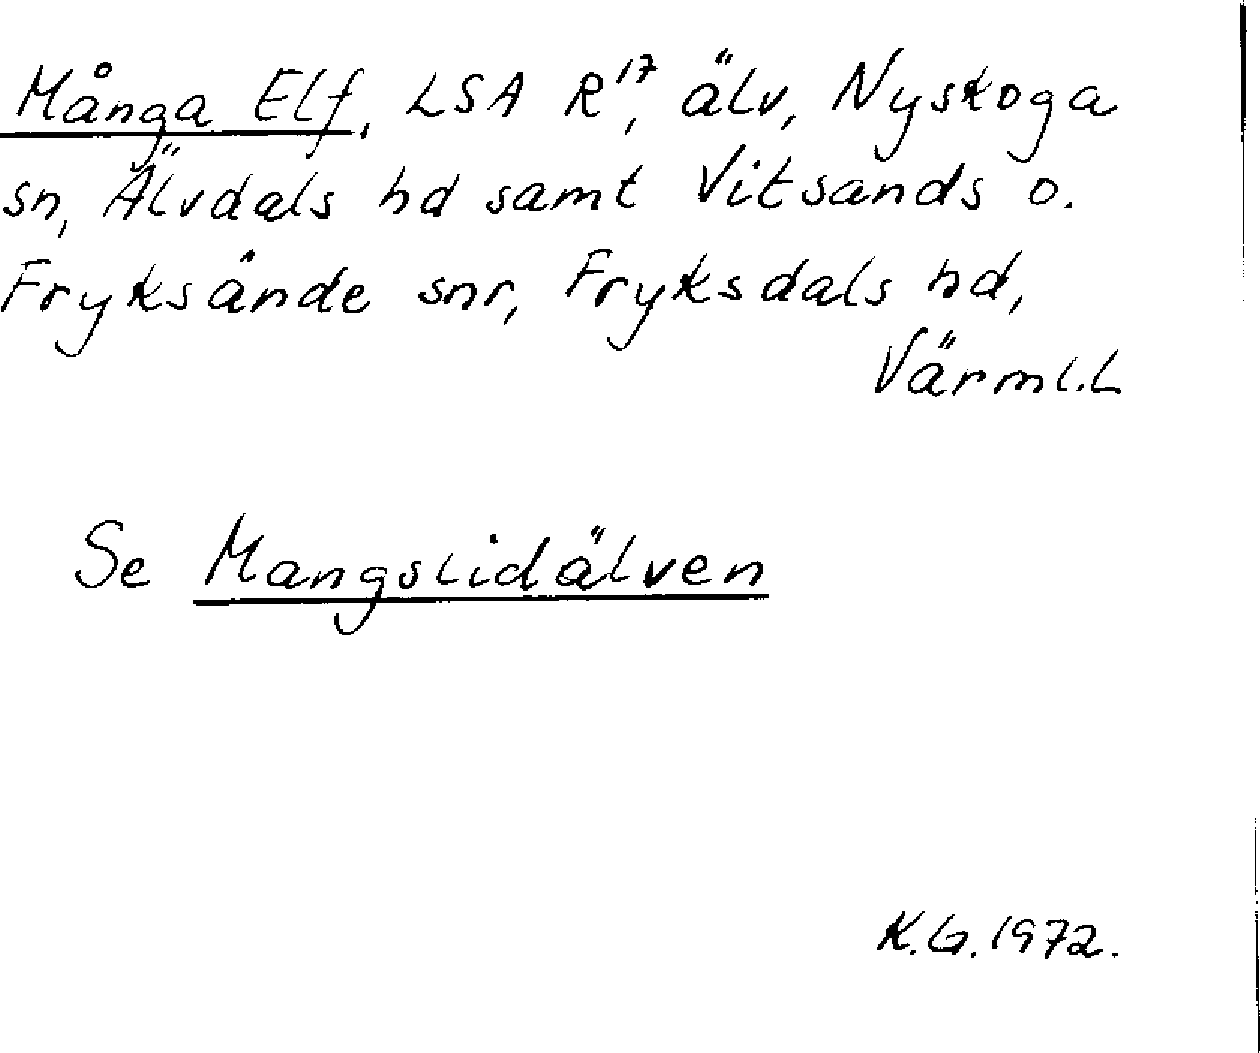 Många Elf, LSA R¹⁷, älv, Nyskoga
sn, Älvdals hd samt Vitsands o.
Fryksände snr, Fryksdals hd,
Värml.L
Se Mangslidälven
K.G. 1972.